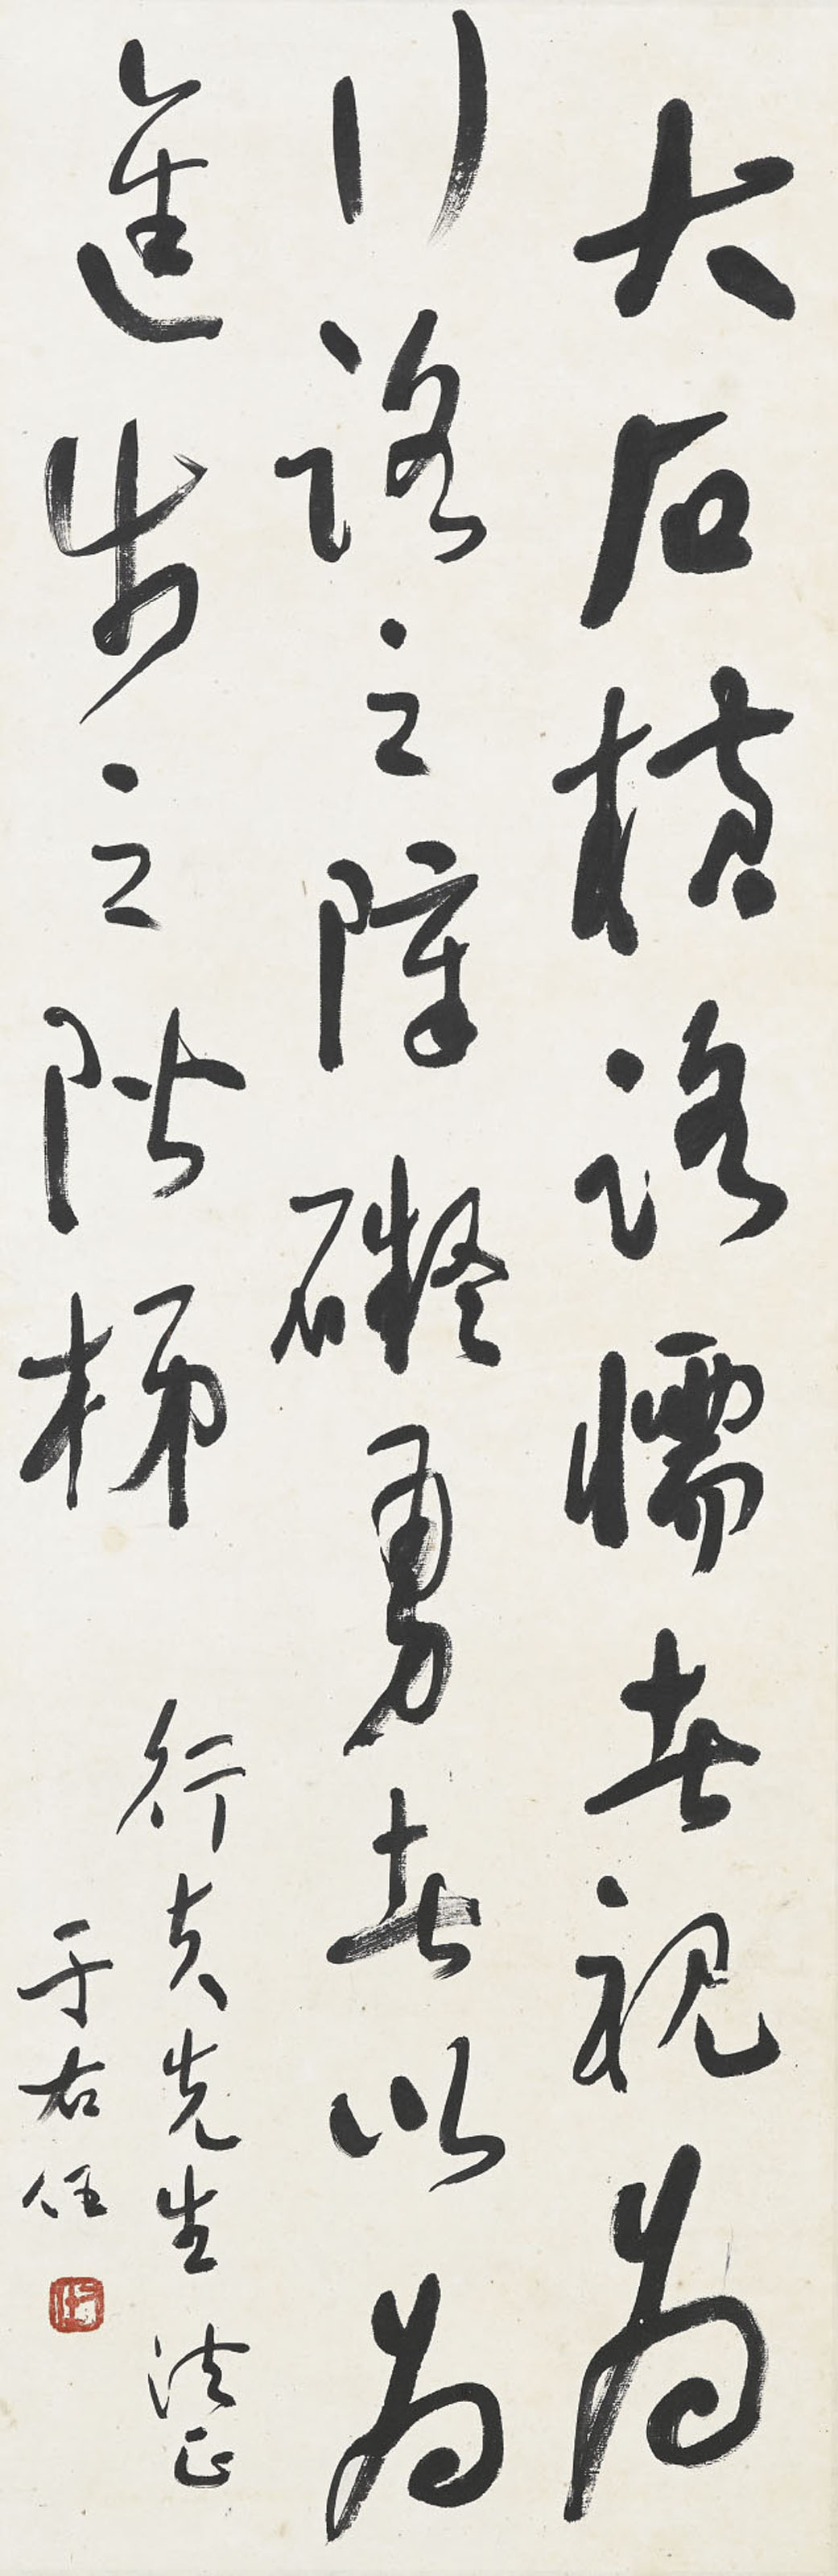 大石橫路懦者視為
行路之障礙勇者以為
進步之階梯
行之先生法正
于右任